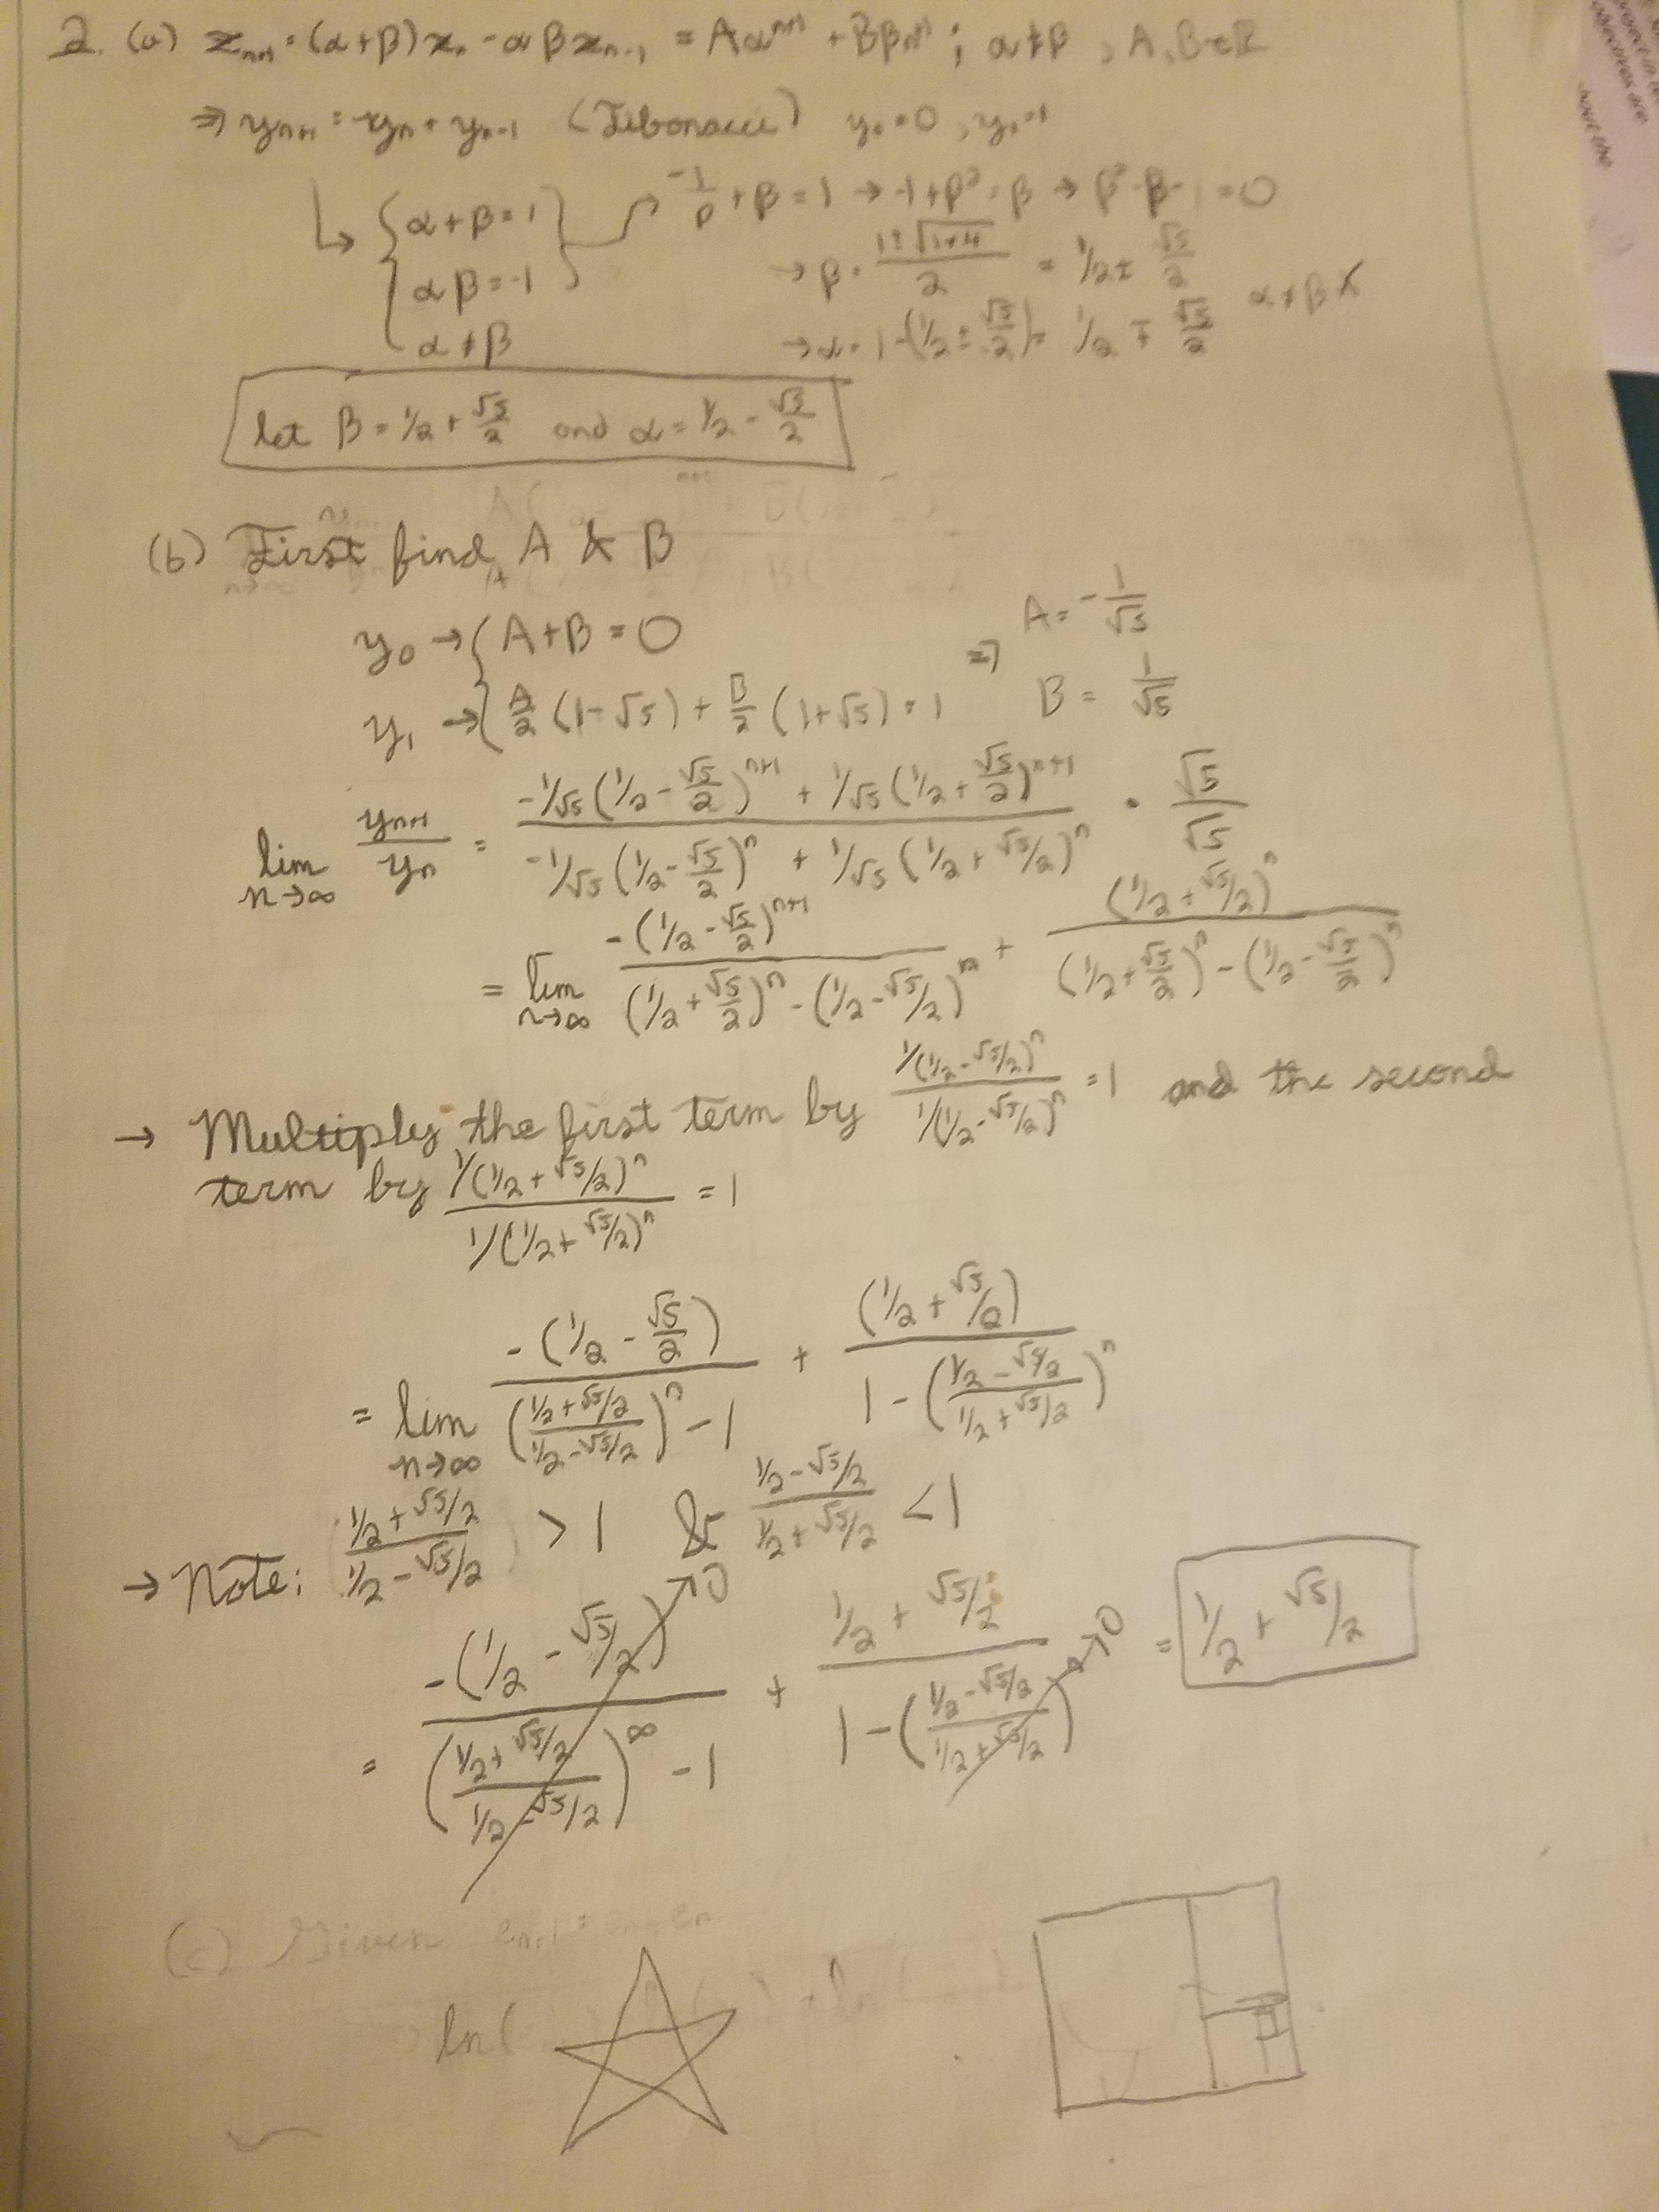 2. (a) x_{n+1} = (α+β)x_n - αβx_{n-1} = Aα^{n+1} + Bβ^{n+1} ; α≠β , A, B∈ℝ
⇒ y_{n+1} = y_n + y_{n-1} (Fibonacci) y_0 = 0 , y_1 = 1
↳ { α+β=1 } → -1/β + β = 1 → -1+β² = β → β²-β-1 = 0
αβ=-1 → β = (1±√(1+4))/2 = 1/2 ± √5/2
α≠β → α = 1-(1/2 ± √5/2) = 1/2 ∓ √5/2 α≠β ✓
let β = 1/2 + √5/2 and α = 1/2 - √5/2
(b) First find A & B
y_0 → { A+B = 0 ⇒ A = -1/√5
y_1 → { A/2 (1-√5) + B/2 (1+√5) = 1 B = 1/√5
lim n→∞ y_{n+1}/y_n = (-1/√5 (1/2 - √5/2)^{n+1} + 1/√5 (1/2 + √5/2)^{n+1}) / (-1/√5 (1/2 - √5/2)^n + 1/√5 (1/2 + √5/2)^n) • √5/√5
= lim n→∞ -(1/2 - √5/2)^{n+1} / ((1/2 + √5/2)^n - (1/2 - √5/2)^n) + (1/2 + √5/2)^n / ((1/2 + √5/2)^n - (1/2 - √5/2)^n)
→ Multiply the first term by (1/(1/2 - √5/2)^n) / (1/(1/2 - √5/2)^n) = 1 and the second
term by (1/(1/2 + √5/2)^n) / (1/(1/2 + √5/2)^n) = 1
= lim n→∞ -(1/2 - √5/2) / (((1/2 + √5/2)/(1/2 - √5/2))^n - 1) + (1/2 + √5/2) / (1 - ((1/2 - √5/2)/(1/2 + √5/2))^n)
→ Note: (1/2 + √5/2)/(1/2 - √5/2) > 1 & (1/2 - √5/2)/(1/2 + √5/2) < 1
= -(1/2 - √5/2) / (((1/2 + √5/2)/(1/2 - √5/2))^∞ - 1) →0 + (1/2 + √5/2) / (1 - ((1/2 - √5/2)/(1/2 + √5/2))) →0 = 1/2 + √5/2
(c) Given e_{n+1} =
ln(